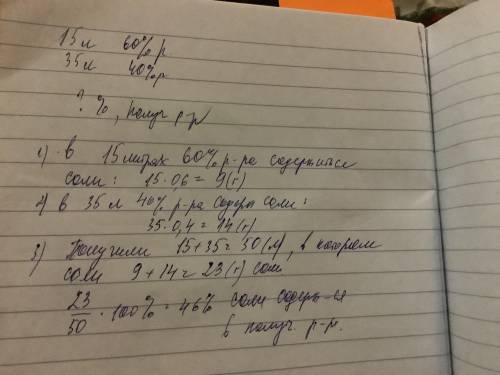 15 л 60% р
35 л 40% р
? %, получ р-р
1) в 15 литрах 60% р-ра содержиться
соли: 15·0,6 = 9(г)
2) в 35 л 40% р-ра содерж соли:
35·0,4 = 14(г)
3) Получили 15+35=50(л), в котором
соли 9+14=23(г) соли
23/50 · 100% = 46% соли содерж-ся
в получ. р-р.